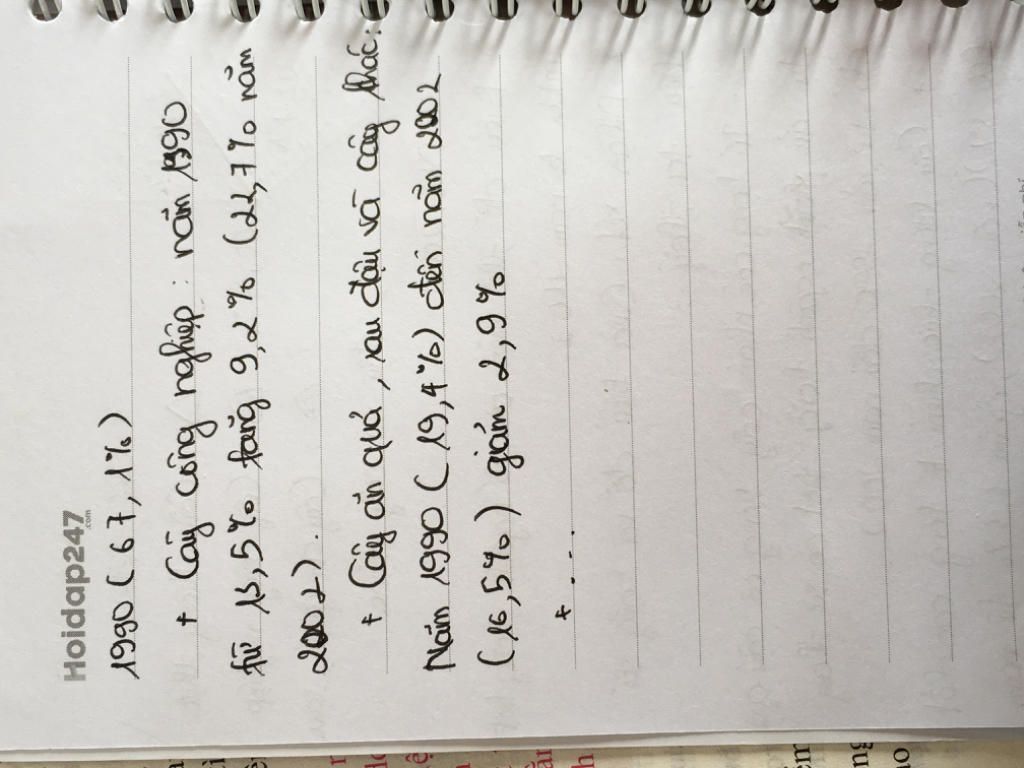 Hoidap247
.com
1990 (67,1%)
+ Cây công nghiệp: năm 1990
từ 13,5% tăng 9,2% (22,7% năm
2002).
+ Cây ăn quả, rau đậu và cây khác:
Năm 1990 (19,4%) đến năm 2002
(16,5%) giảm 2,9%
+ ....